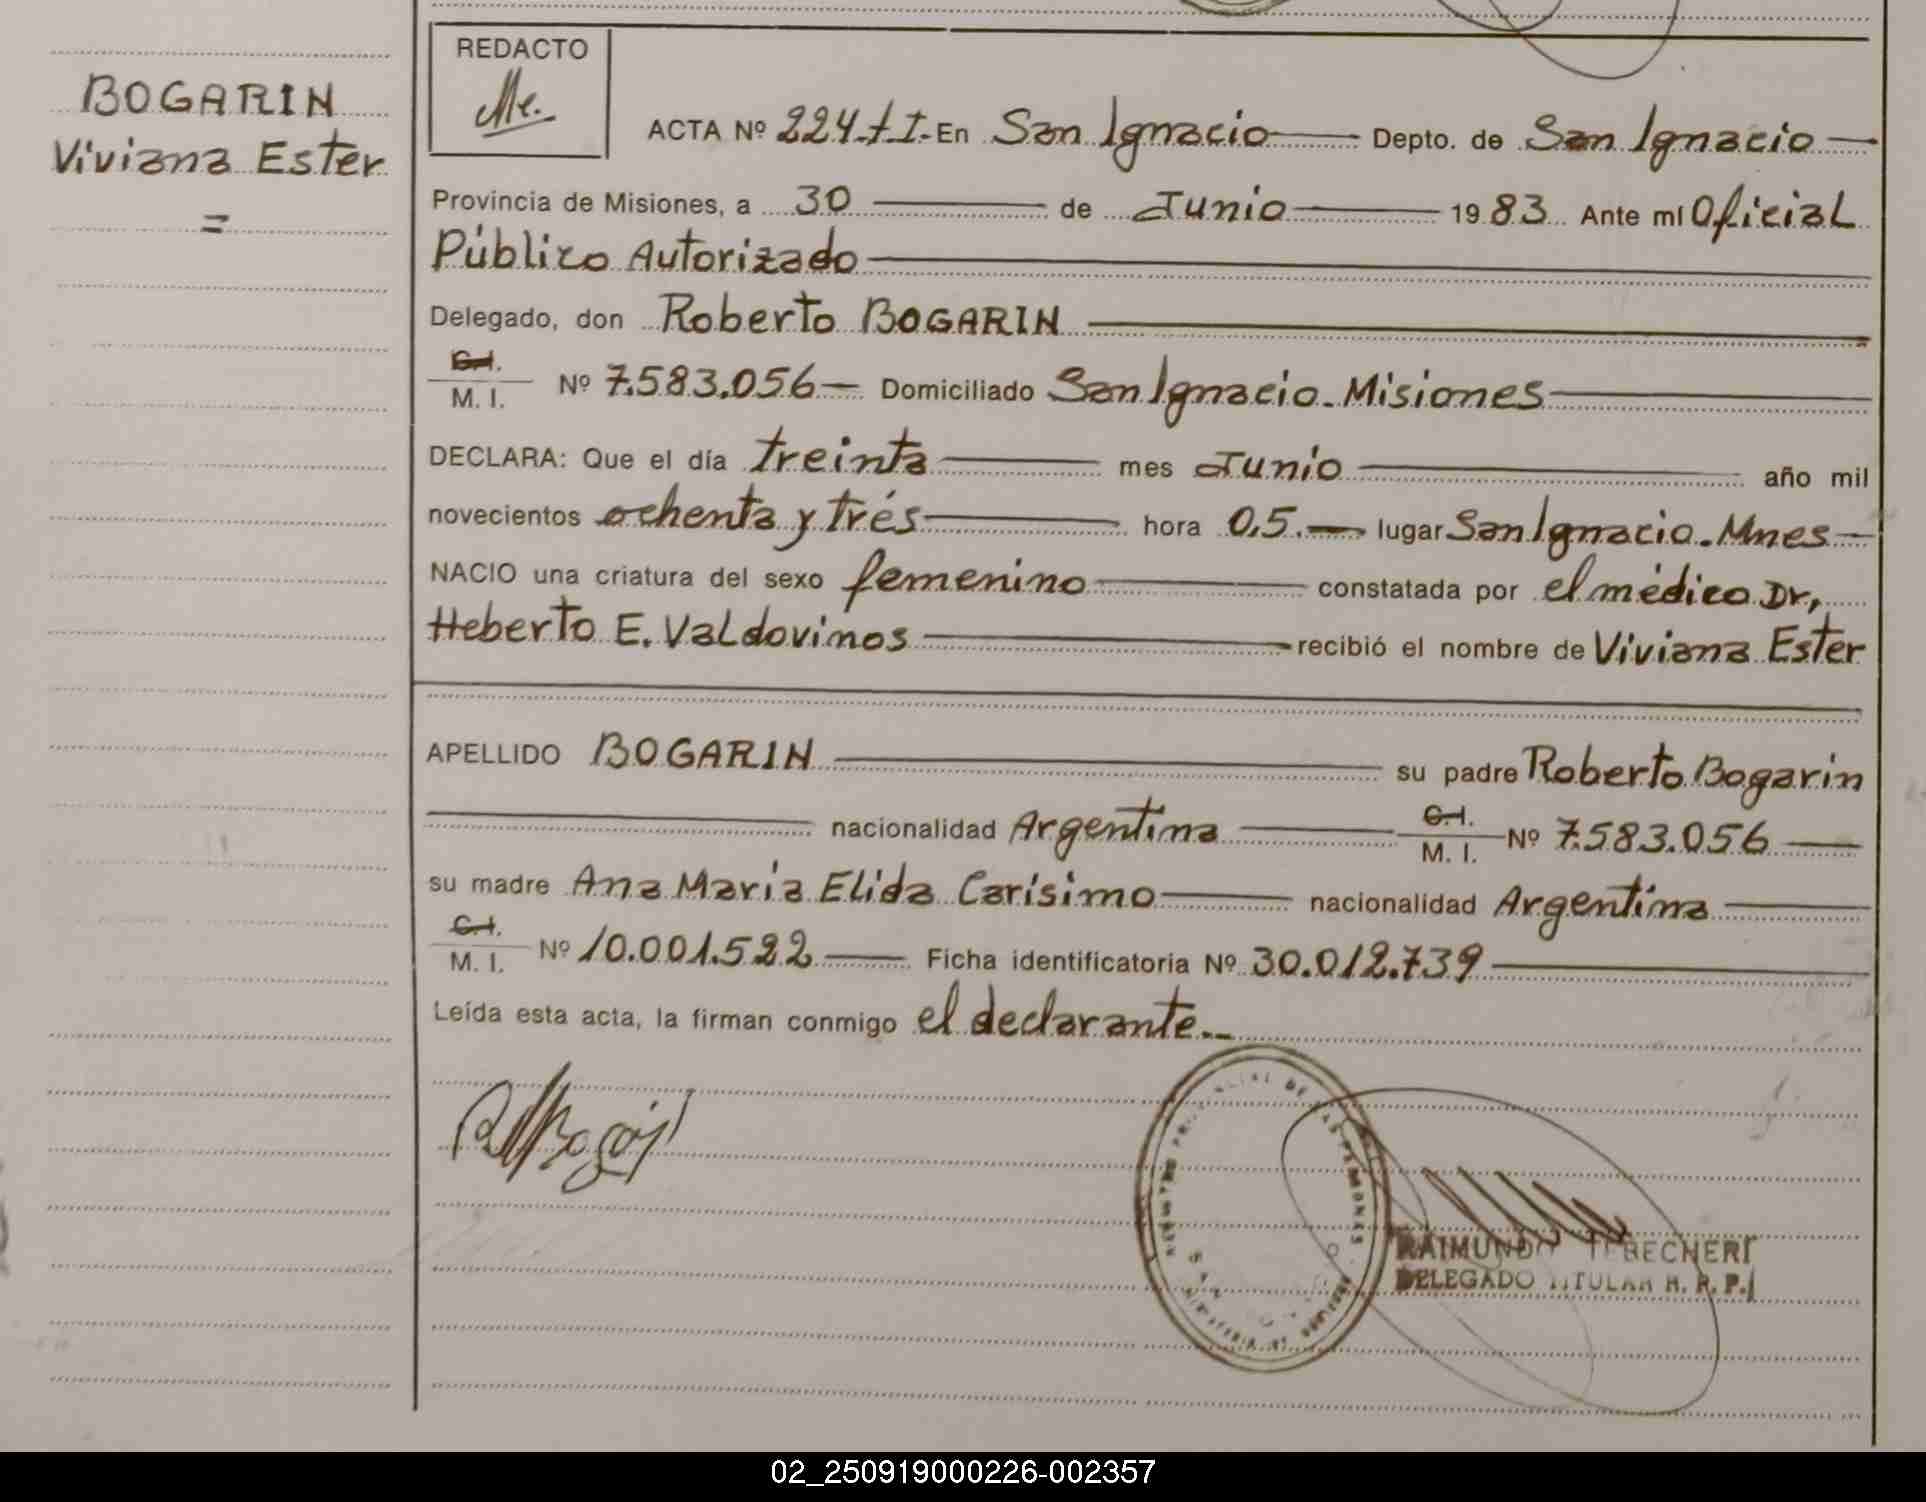 BOGARIN
Viviana Ester
=
REDACTO
ACTA Nº 224-tI- En San Ignacio Depto. de San Ignacio
Provincia de Misiones, a 30 de Junio 1983 Ante mí Oficial
Público Autorizado
Delegado, don Roberto BOGARIN
C.I.
M. I. Nº 7.583.056 Domiciliado San Ignacio. Misiones
DECLARA: Que el día treinta mes Junio año mil
novecientos ochenta y trés hora 0,5. lugar San Ignacio. Mnes
NACIO una criatura del sexo femenino constatada por el médico Dr,
Heberto E. Valdovinos recibió el nombre de Viviana Ester
APELLIDO BOGARIN su padre Roberto Bogarin
nacionalidad Argentina C.I.
M. I. Nº 7.583.056
su madre Ana Maria Elida Carísimo nacionalidad Argentina
C.I.
M. I. Nº 10.001.522 Ficha identificatoria Nº 30.012.739
Leída esta acta, la firman conmigo el declarante.
DE LAS PERSONAS
RAIMUNDO
DELEGADO TITULAR R. P.
02_250919000226-002357